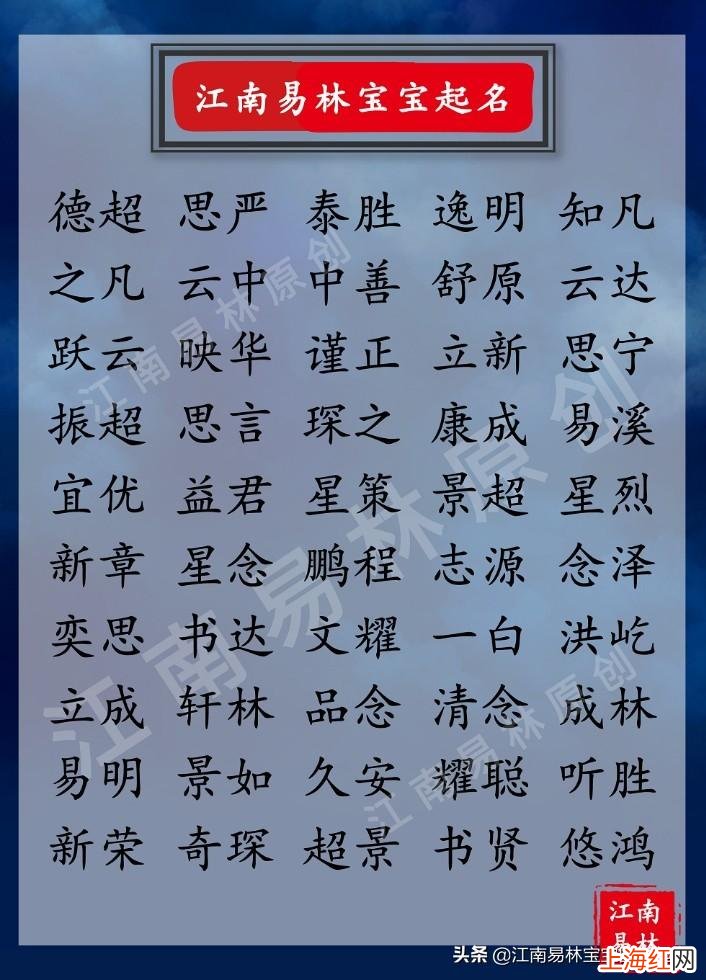 江南易林宝宝起名
德超 思严 泰胜 逸明 知凡
之凡 云中 中善 舒原 云达
跃云 映华 谨正 立新 思宁
振超 思言 琛之 康成 易溪
宜优 益君 星策 景超 星烈
新章 星念 鹏程 志源 念泽
奕思 书达 文耀 一白 洪屹
立成 轩林 品念 清念 成林
易明 景如 久安 耀聪 听胜
新荣 奇琛 超景 书贤 悠鸿
江南易林原创
江南易林原创
江南易林原创
江南
易林
头条 @江南易林宝宝
上海红网